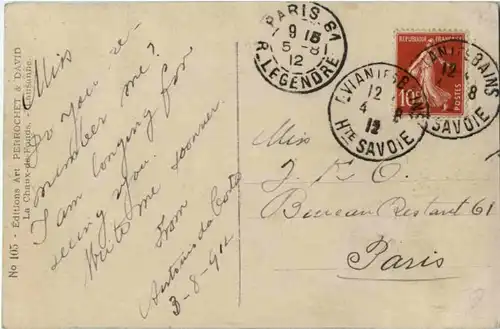 No 105 - Éditions Art PERROCHET & DAVID
La Chaux-de-Fonds
Miss
Do you re-
member me?
I am longing for
seeing you.
Write me sooner.
From
Antonio da Costa
3-8-912
PARIS 61
9 15
5-8
12
R. LEGENDRE
EVIAN LES BAINS
12
4 8
12
HTE SAVOIE
EVIAN LES BAINS
12
8
SAVOIE
RÉPUBLIQUE FRANÇAISE
10c
POSTES
Miss
J. K. O.
Bureau Restant 61
Paris